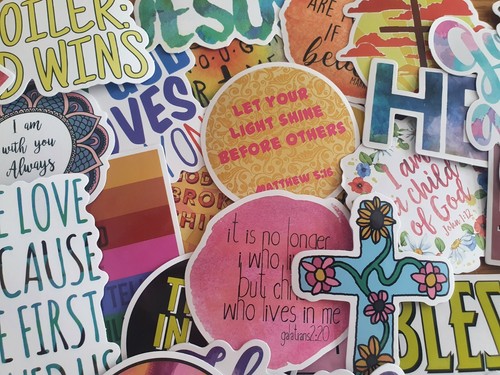 OILER:
D WINS
JESU
ARE
IF
be
LOVES
I am
with you
Always
LET YOUR
LIGHT SHINE
BEFORE OTHERS
MATTHEW 5:16
HE
I am
a child
of God
John 1:12
GOD
BROK
it is no longer
I who li
but chr
who lives in me
galatians 2:20
E LOVE
CAUSE
E FIRST
VED US
T
IN
BLES